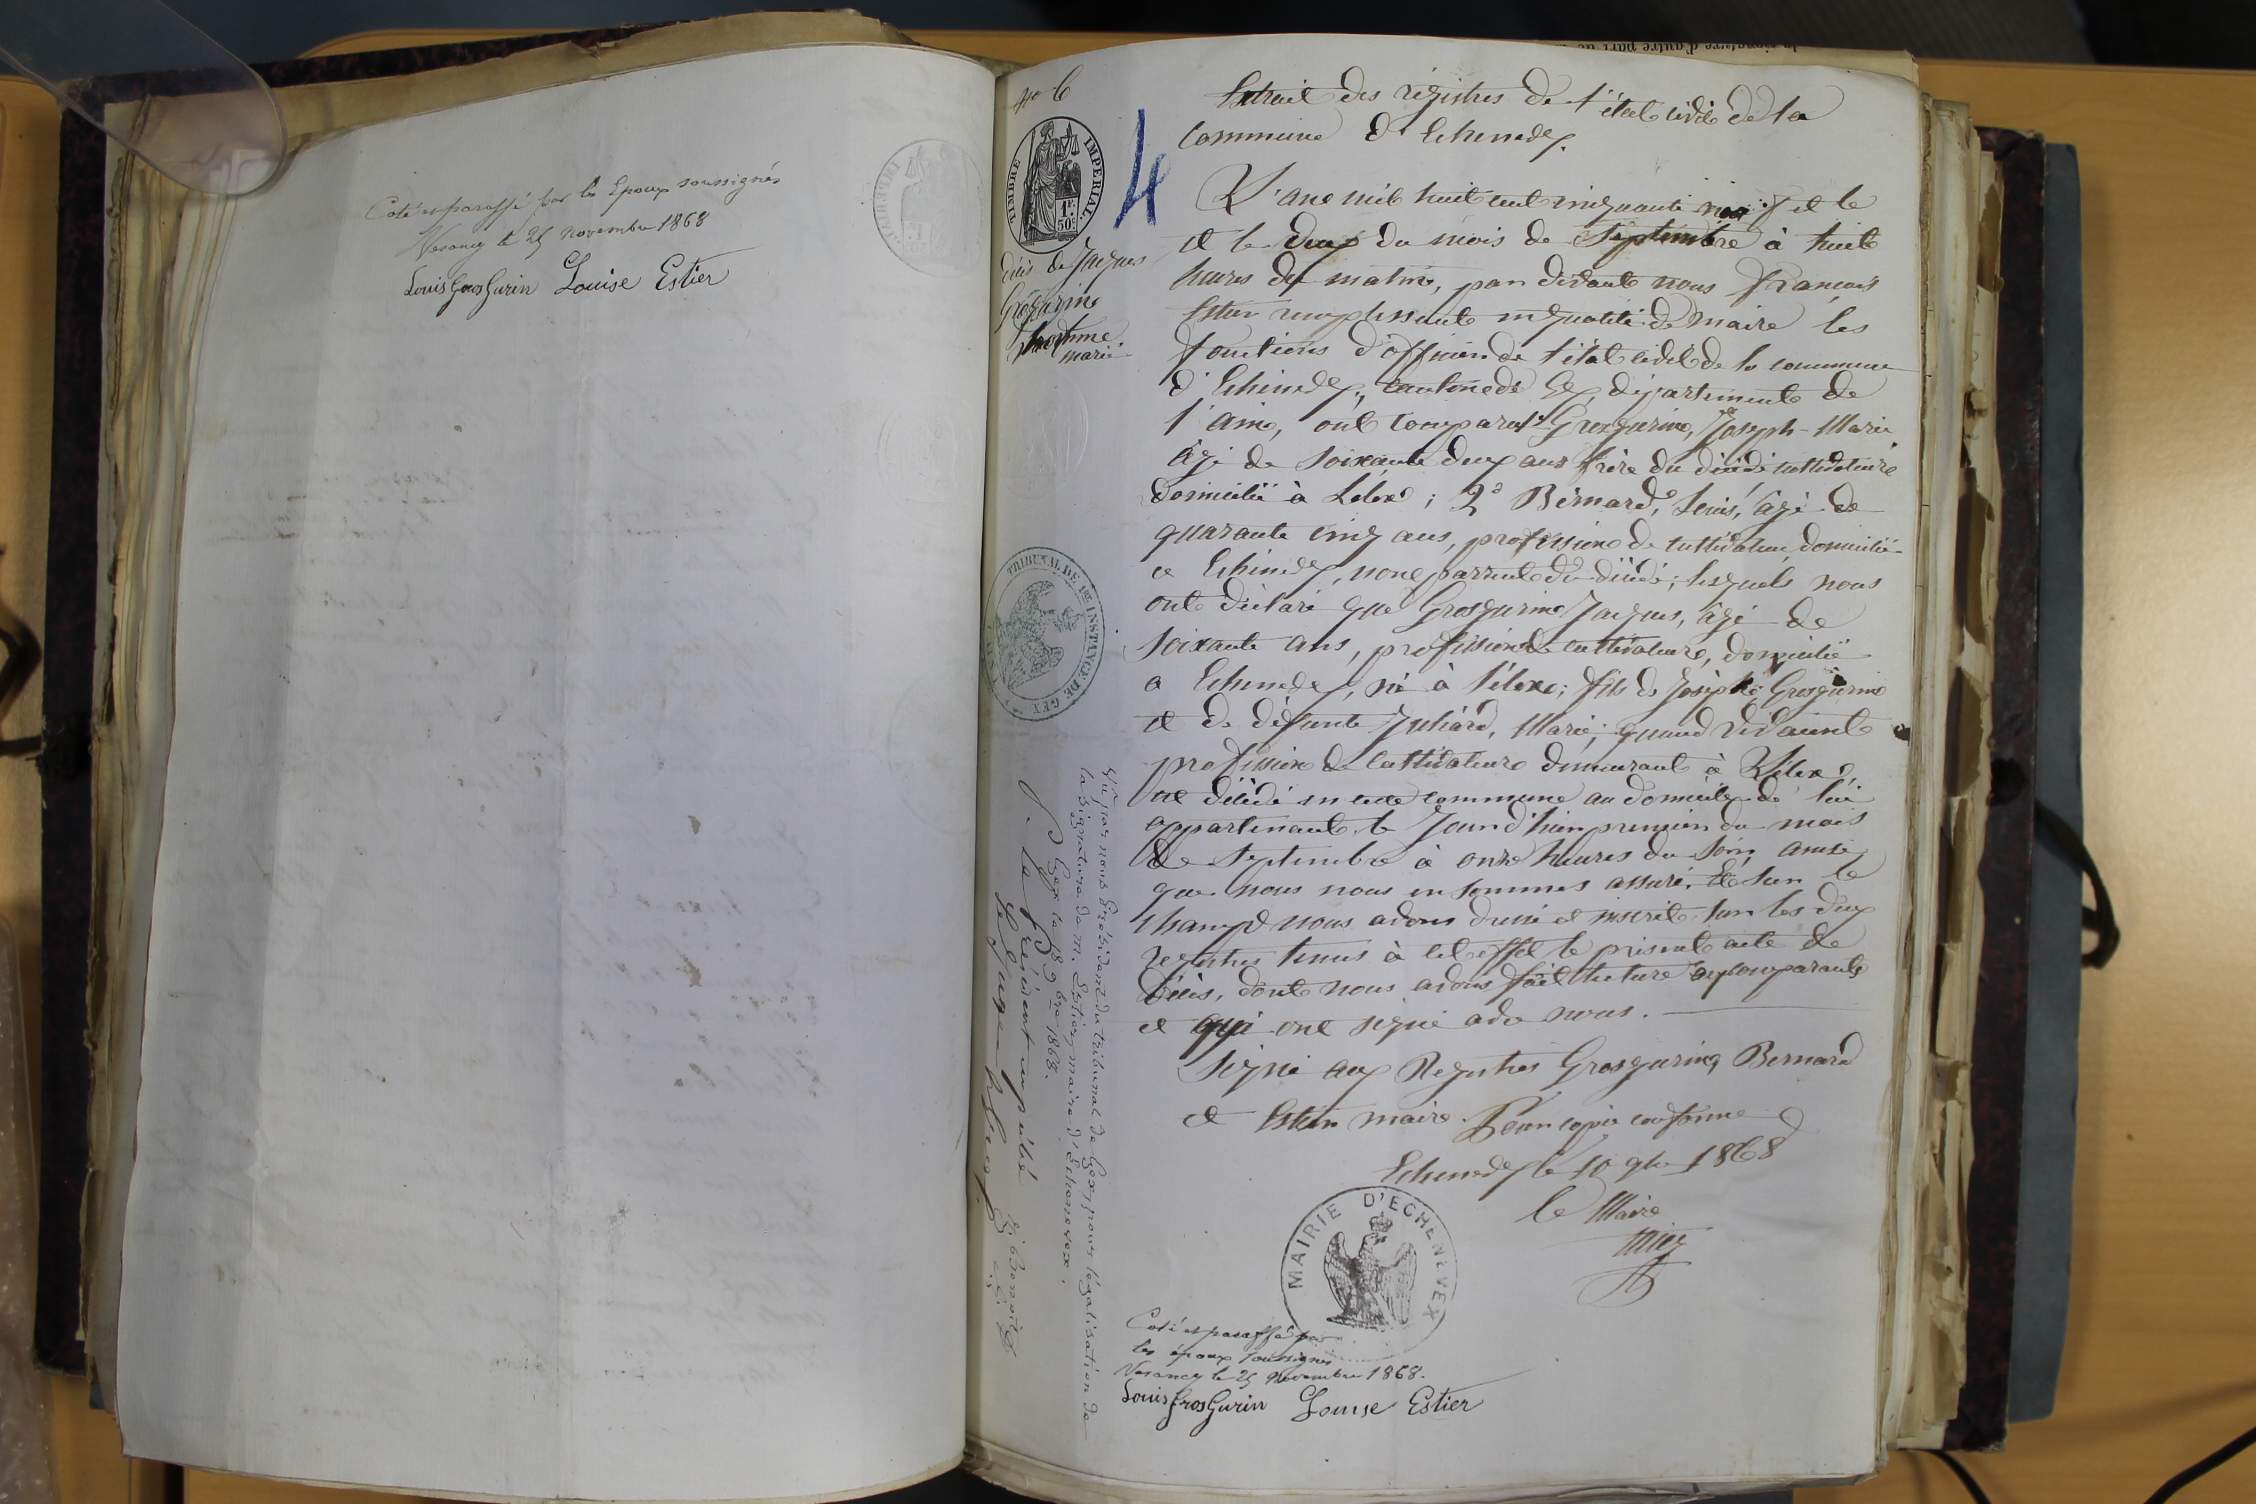 Coté et paraffé par les Epoux soussignés
Vesancy le 25 novembre 1868
Louis GrosGurin Louise Estier
no 6
TIMBRE IMPERIAL
1F 50c
4
décès de Jacques
Grosgurin
homme
marié
TRIBUNAL DE 1RE INSTANCE DE GEX
Extrait des régistres de l'état civil de la
commune d'Echenevex.
L'an mil huit cent cinquante neuf et le
et le deux du mois de Septembre à huit
heures du matin, par devant nous François
Estier remplissant en qualité de Maire les
fonctions d'officier de l'état civil de la commune
d'Echenevex, canton de Gex, département de
l'ain, ont comparu 1° Grosgurin, Joseph-Marie
âgé de Soixante deux ans frère du décédé cultivateur
domicilié à Lelex; 2° Bernard, Louis, âgé de
quarante cinq ans, profession de cultivateur, domicilié
a Echenevex, non parent du décédé; lesquels nous
ont déclaré que Grosgurin Jacques, âgé de
soixante ans, profession de cultivateur, domicilié
a Echenevex, né à Lélex; fils de Joseph Grosgurin
et de défunte Juliard, Marie; quand vivaient
profession de cultivateurs demeurant à Lélex,
est décédé en cette commune au domicile de lui
appartenant le jour d'hier premier du mois
de Septembre à onze heures du soir, ainsi
que nous nous en sommes assuré, Et sur le
champ nous avons dressé et inscrit sur les deux
registres tenus à cet effet le présent acte de
décès, dont nous avons fait lecture aux comparants
et qui ont signé avec nous.
Signé aux Registres Grosgurin, Bernard
et Estier maire. Pour copie conforme
Echenevex le 10 9bre 1868
le Maire
MAIRIE D'ECHENEVEX
Coté et paraffé par
les époux soussignés
Vesancy le 25 Novembre 1868.
Louis GrosGurin Louise Estier
Vu par nous Président du tribunal de Gex, pour légalisation de
la signature de M. Estier, maire d'Echenevex.
Gex le 18 9bre 1868.
P. le Président empêché
Le Juge